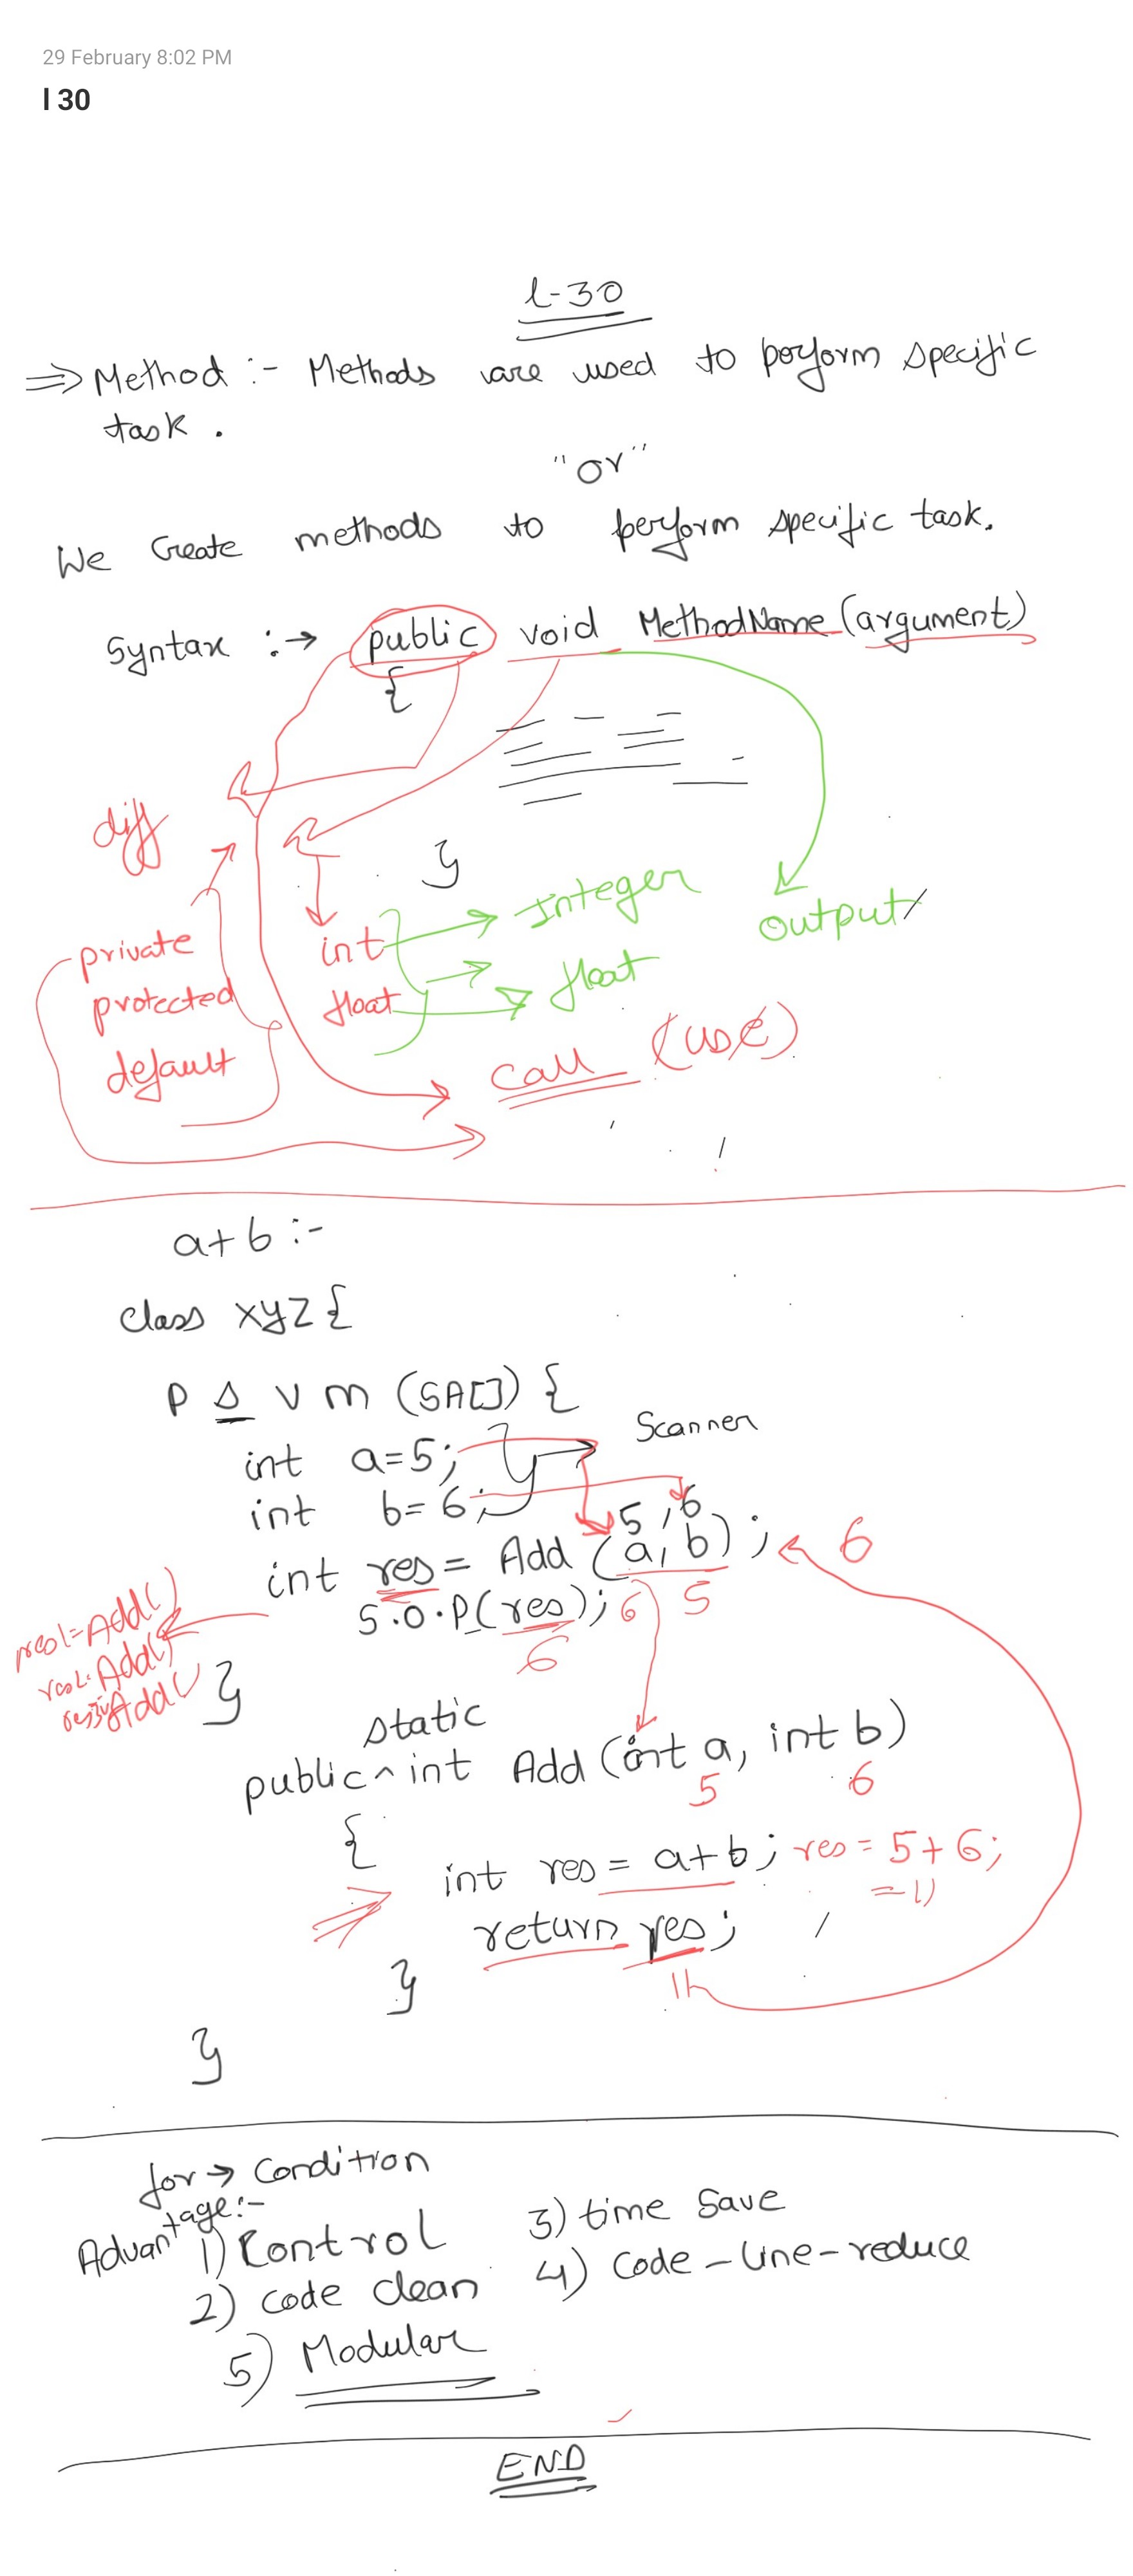 29 February 8:02 PM
l 30
L-30
⇒ Method :- Methods are used to perform specific
task .
"or"
We Create methods to perform specific task.
Syntax :→ public void MethodName (argument)
{
}
diff
Integer
output
int
private
float
protected
float
default
call (use)
a+b :-
class XYZ {
P S V m (SA[]) {
Scanner
int a=5;
int b= 6;
5, 6
int res = Add (a, b) ; 6
S.O.P(res); 6 5
6
res1=Add()
Add()
Add()
}
static
public ^ int Add (int a, int b)
5 6
{
int res = a+b ; res = 5+6;
=11
return res;
11
}
}
for → Condition
Advantage:-
1) Control 3) time Save
2) code clean 4) code-line-reduce
5) Modular
END